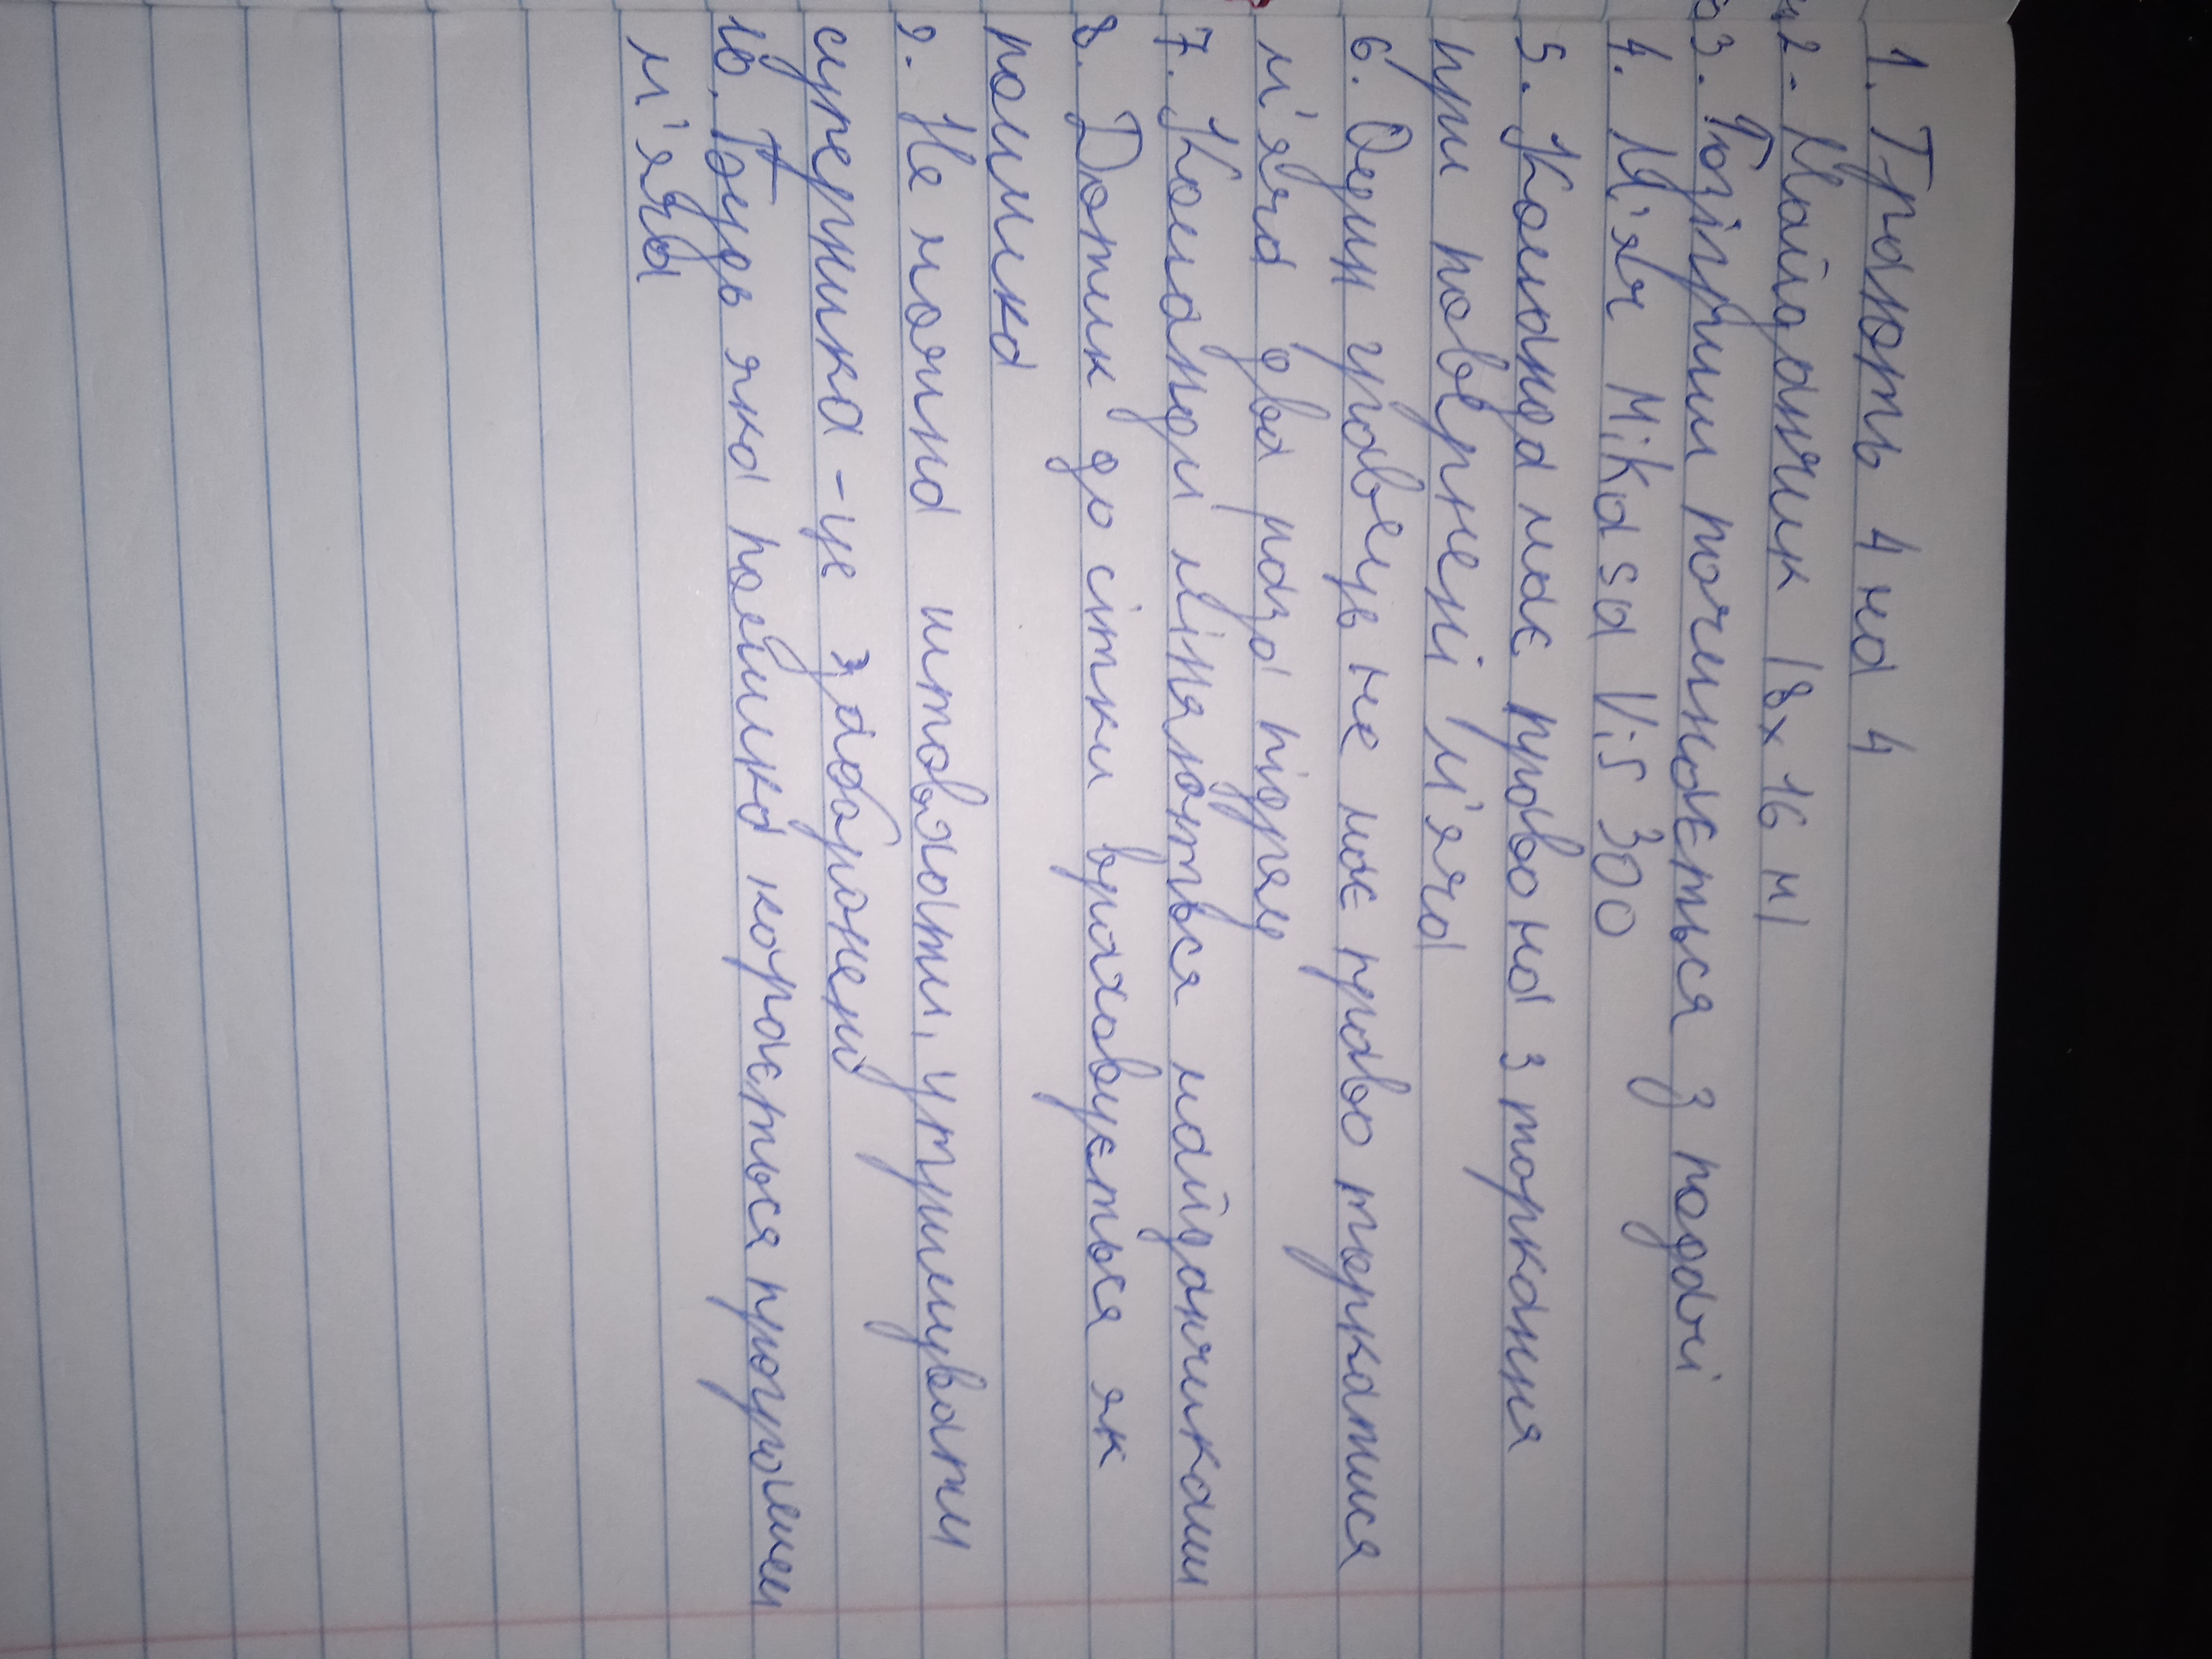 1. Грають 4 на 4
2. Майданчик 18х16 м
3. Розіграш починається з подачі
4. М'яч Mikasa V:S 300
5. Команда має право на 3 торкання
при поверненні м'яча
6. Один гравець не має право торкатися
м'яча два рази підряд
7. Команди міняються майданчиками
8. Дотик до сітки враховується як
помилка
9. Не можна штовхати, утримувати
суперника - це заборонені
10. Будь яка помилка карається програшем
м'яча